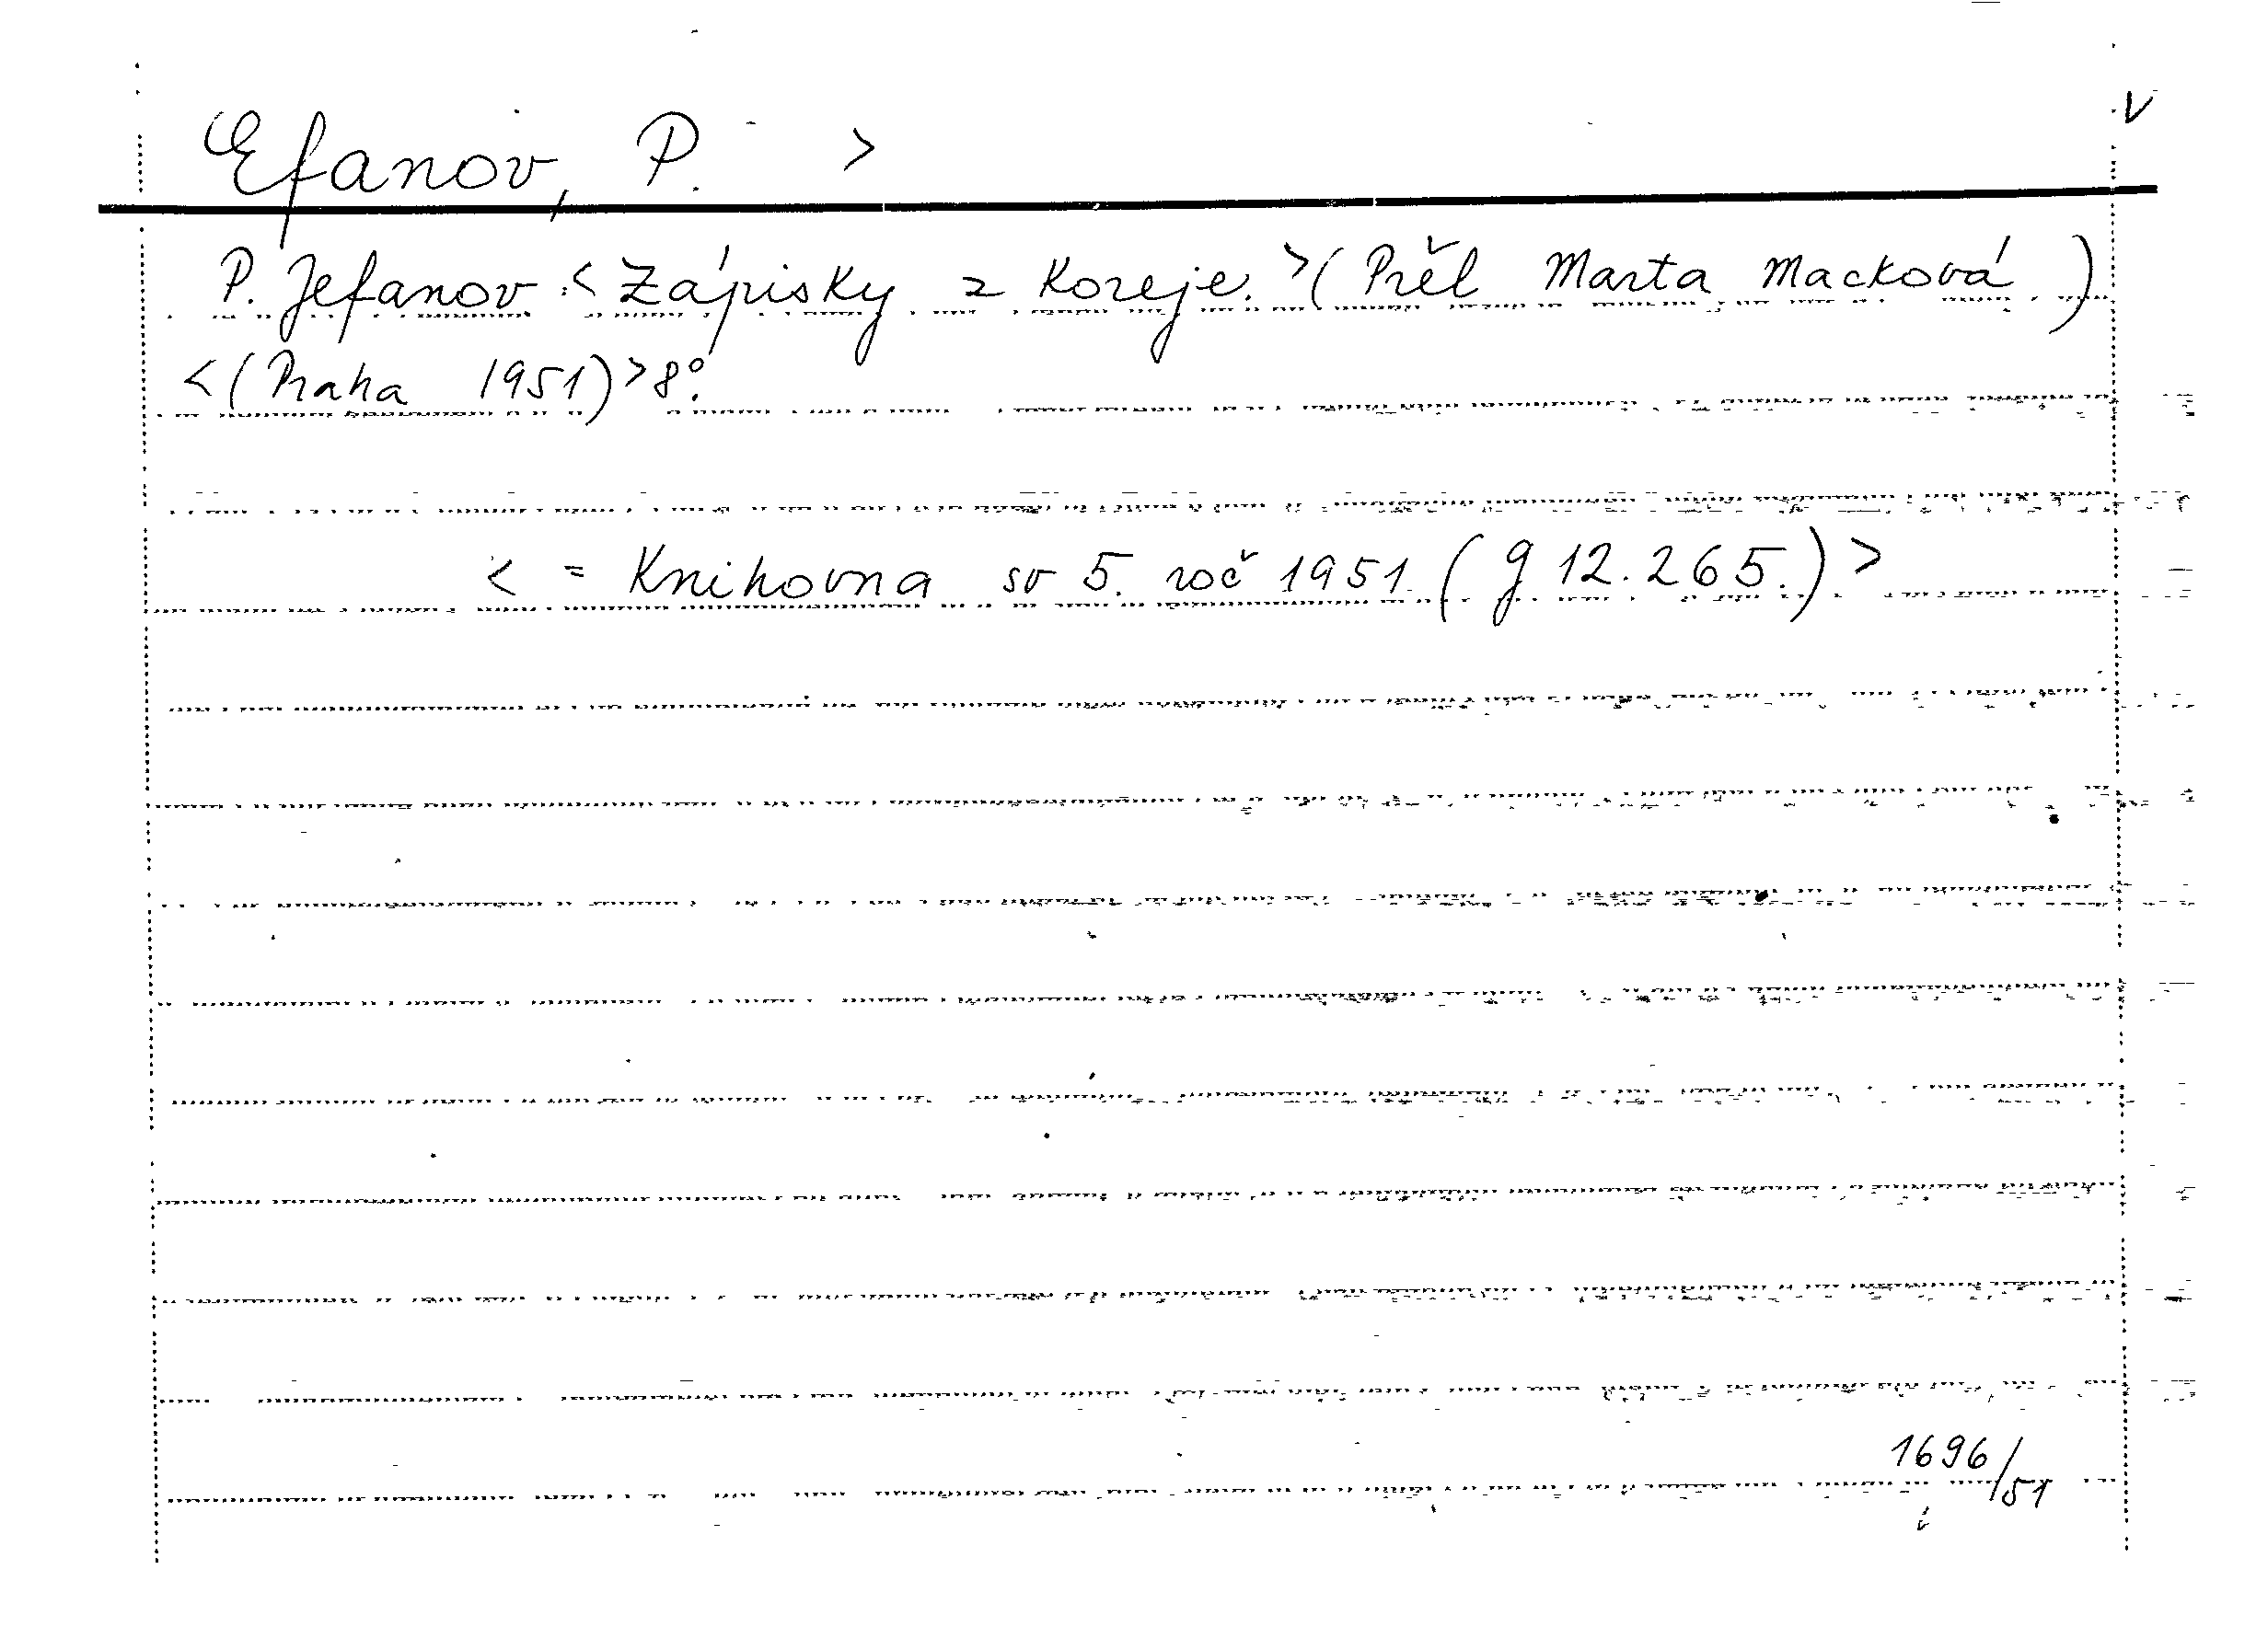 V
Efanov, P. >
P. Jefanov < Zápisky z Koreje. > (Přel Marta Macková )
< (Praha 1951) > 8°.
< = Knihovna sv 5. roč 1951 (g 12.265.) >
1696/51